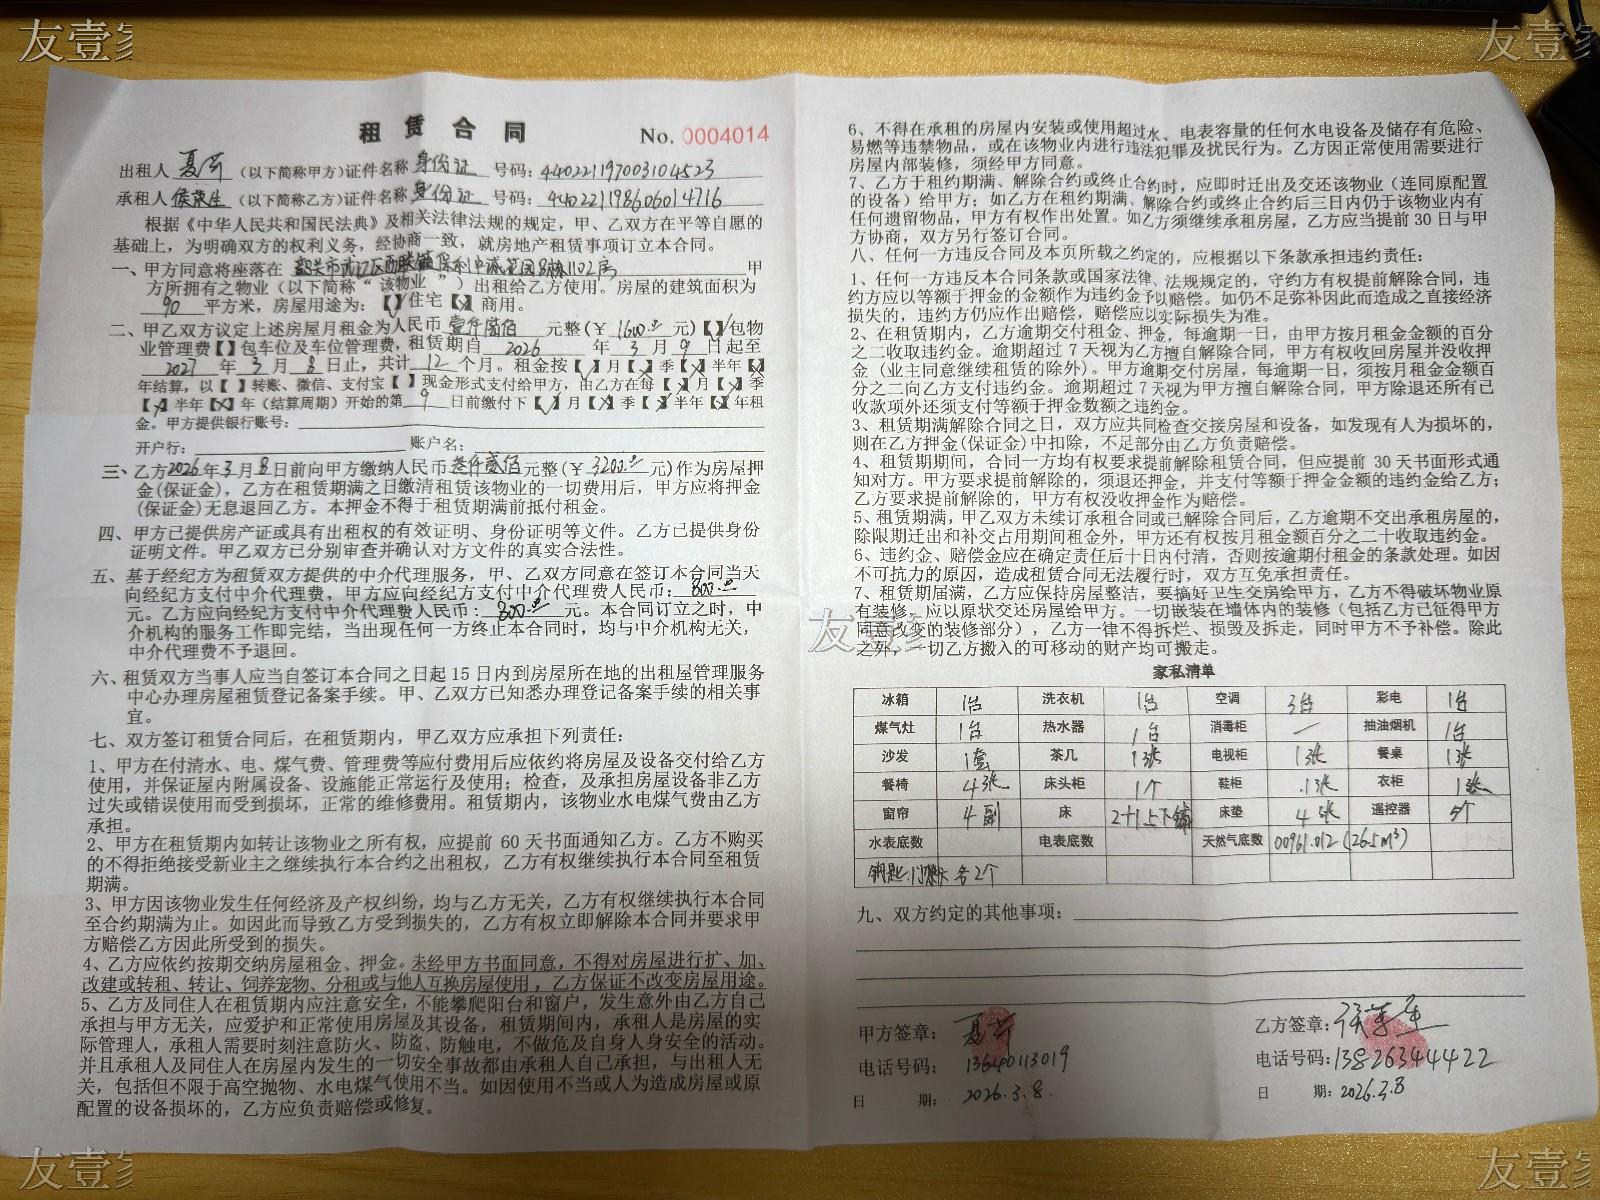 友壹家
友壹家
租赁合同 No. 0004014
出租人 夏芳 (以下简称甲方)证件名称 身份证 号码: 440221197003104523
承租人 侯荣生 (以下简称乙方)证件名称 身份证 号码: 440221198606014716
根据《中华人民共和国民法典》及相关法律法规的规定，甲、乙双方在平等自愿的
基础上，为明确双方的权利义务，经协商一致，就房地产租赁事项订立本合同。
一、甲方同意将座落在 韶关市武江区西联镇保利中诚花园8栋1102房 甲
方所拥有之物业（以下简称“该物业”）出租给乙方使用。房屋的建筑面积为
90 平方米，房屋用途为：【√】住宅【×】商用。
二、甲乙双方议定上述房屋月租金为人民币 壹仟陆佰 元整(￥ 1600.00 元)【√】包物
业管理费【 】包车位及车位管理费，租赁期自 2026 年 3 月 9 日起至
2027 年 3 月 8 日止，共计 12 个月。租金按【√】月【×】季【×】半年【×】
年结算，以【 】转账、微信、支付宝【 】现金形式支付给甲方，由乙方在每【√】月【×】季
【×】半年【×】年（结算周期）开始的第 9 日前缴付下【√】月【×】季【×】半年【×】年租
金。甲方提供银行账号：
开户行： 账户名：
三、乙方2026年3月8日前向甲方缴纳人民币 叁仟贰佰 元整(￥ 3200.00 元)作为房屋押
金(保证金)，乙方在租赁期满之日缴清租赁该物业的一切费用后，甲方应将押金
(保证金)无息退回乙方。本押金不得于租赁期满前抵付租金。
四、甲方已提供房产证或具有出租权的有效证明、身份证明等文件。乙方已提供身份
证明文件。甲乙双方已分别审查并确认对方文件的真实合法性。
五、基于经纪方为租赁双方提供的中介代理服务，甲、乙双方同意在签订本合同当天
向经纪方支付中介代理费，甲方应向经纪方支付中介代理费人民币：800.00
元。乙方应向经纪方支付中介代理费人民币：800.00 元。本合同订立之时，中
介机构的服务工作即完结，当出现任何一方终止本合同时，均与中介机构无关，
中介代理费不予退回。
六、租赁双方当事人应当自签订本合同之日起 15 日内到房屋所在地的出租屋管理服务
中心办理房屋租赁登记备案手续。甲、乙双方已知悉办理登记备案手续的相关事
宜。
七、双方签订租赁合同后，在租赁期内，甲乙双方应承担下列责任：
1、甲方在付清水、电、煤气费、管理费等应付费用后应依约将房屋及设备交付给乙方
使用，并保证屋内附属设备、设施能正常运行及使用；检查，及承担房屋设备非乙方
过失或错误使用而受到损坏，正常的维修费用。租赁期内，该物业水电煤气费由乙方
承担。
2、甲方在租赁期内如转让该物业之所有权，应提前 60 天书面通知乙方。乙方不购买
的不得拒绝接受新业主之继续执行本合约之出租权，乙方有权继续执行本合同至租赁
期满。
3、甲方因该物业发生任何经济及产权纠纷，均与乙方无关，乙方有权继续执行本合同
至合约期满为止。如因此而导致乙方受到损失的，乙方有权立即解除本合同并要求甲
方赔偿乙方因此所受到的损失。
4、乙方应依约按期交纳房屋租金、押金。未经甲方书面同意，不得对房屋进行扩、加、
改建或转租、转让、饲养宠物、分租或与他人互换房屋使用，乙方保证不改变房屋用途。
5、乙方及同住人在租赁期内应注意安全，不能攀爬阳台和窗户，发生意外由乙方自己
承担与甲方无关，应爱护和正常使用房屋及其设备，租赁期间内，承租人是房屋的实
际管理人，承租人需要时刻注意防火、防盗、防触电，不做危及自身人身安全的活动。
并且承租人及同住人在房屋内发生的一切安全事故都由承租人自己承担，与出租人无
关，包括但不限于高空抛物、水电煤气使用不当。如因使用不当或人为造成房屋或原
配置的设备损坏的，乙方应负责赔偿或修复。
6、不得在承租的房屋内安装或使用超过水、电表容量的任何水电设备及储存有危险、
易燃等违禁物品，或在该物业内进行违法犯罪及扰民行为。乙方因正常使用需要进行
房屋内部装修，须经甲方同意。
7、乙方于租约期满、解除合约或终止合约时，应即时迁出及交还该物业（连同原配置
的设备）给甲方；如乙方在租约期满、解除合约或终止合约后三日内仍于该物业内有
任何遗留物品，甲方有权作出处置。如乙方须继续承租房屋，乙方应当提前 30 日与甲
方协商，双方另行签订合同。
八、任何一方违反合同及本页所载之约定的，应根据以下条款承担违约责任：
1、任何一方违反本合同条款或国家法律、法规规定的，守约方有权提前解除合同，违
约方应以等额于押金的金额作为违约金予以赔偿。如仍不足弥补因此而造成之直接经济
损失的，违约方仍应作出赔偿，赔偿应以实际损失为准。
2、在租赁期内，乙方逾期交付租金、押金，每逾期一日，由甲方按月租金金额的百分
之二收取违约金。逾期超过 7 天视为乙方擅自解除合同，甲方有权收回房屋并没收押
金（业主同意继续租赁的除外）。甲方逾期交付房屋，每逾期一日，须按月租金金额百
分之二向乙方支付违约金。逾期超过 7 天视为甲方擅自解除合同，甲方除退还所有已
收款项外还须支付等额于押金数额之违约金。
3、租赁期满解除合同之日，双方应共同检查交接房屋和设备，如发现有人为损坏的，
则在乙方押金(保证金)中扣除，不足部分由乙方负责赔偿。
4、租赁期期间，合同一方均有权要求提前解除租赁合同，但应提前 30 天书面形式通
知对方。甲方要求提前解除的，须退还押金，并支付等额于押金金额的违约金给乙方；
乙方要求提前解除的，甲方有权没收押金作为赔偿。
5、租赁期满，甲乙双方未续订承租合同或已解除合同后，乙方逾期不交出承租房屋的，
除限期迁出和补交占用期间租金外，甲方还有权按月租金额百分之二十收取违约金。
6、违约金、赔偿金应在确定责任后十日内付清，否则按逾期付租金的条款处理。如因
不可抗力的原因，造成租赁合同无法履行时，双方互免承担责任。
7、租赁期届满，乙方应保持房屋整洁，要搞好卫生交房给甲方，乙方不得破坏物业原
有装修，应以原状交还房屋给甲方。一切嵌装在墙体内的装修（包括乙方已征得甲方
同意改变的装修部分），乙方一律不得拆烂、损毁及拆走，同时甲方不予补偿。除此
之外，一切乙方搬入的可移动的财产均可搬走。
友壹家
家私清单
冰箱 1台 洗衣机 1台 空调 3台 彩电 1台
煤气灶 1台 热水器 1台 消毒柜 — 抽油烟机 1台
沙发 1套 茶几 1张 电视柜 1张 餐桌 1张
餐椅 4张 床头柜 1个 鞋柜 1张 衣柜 1张
窗帘 4副 床 2+1上下铺 床垫 4张 遥控器 5个
水表底数 电表底数 天然气底数 00961.012 (265m³)
钥匙.门禁卡各2个
九、双方约定的其他事项：
甲方签章： 夏芳
乙方签章: 侯荣生
电话号码: 13640113019
电话号码: 13826344422
日 期: 2026.3.8.
日 期: 2026.3.8
友壹家
友壹家